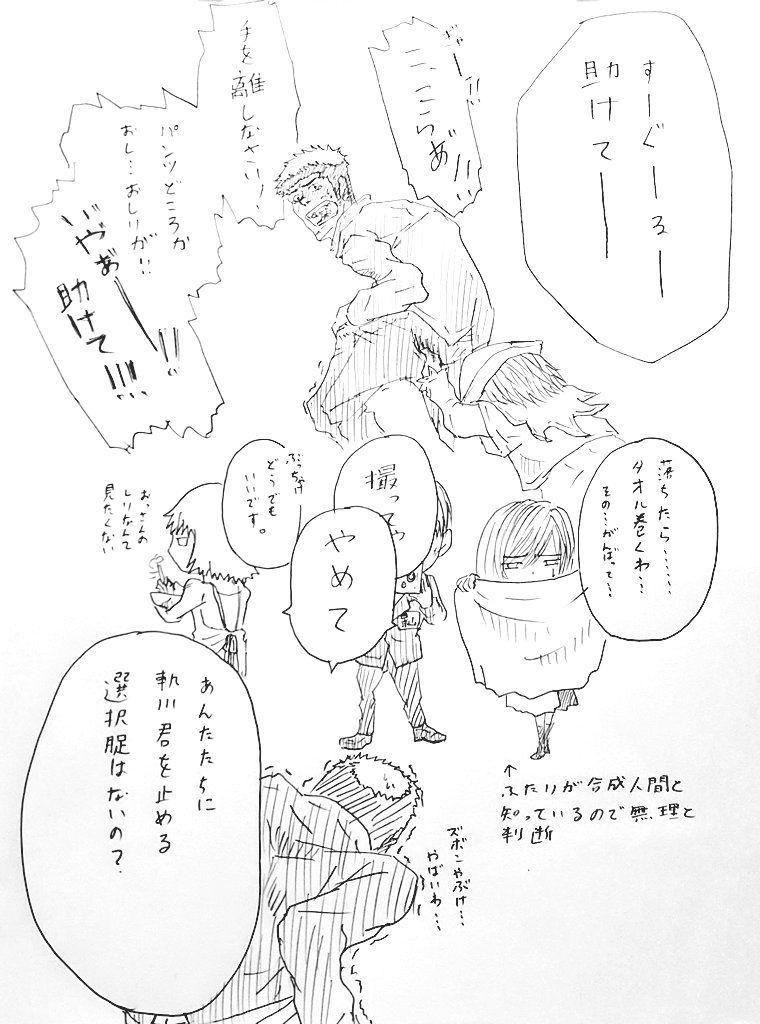 すーぐーるー
助けてー
ぎーー!!!
こ、こらぁ"!!!
手を離しなさい!
パンツどころか
おし…おしりが!!
いやぁーー!!
助けて!!!
落ちたら……
タオル巻くわ…
その…がんばって…
撮ってや
やめて
ぶっちゃけ
どうでも
いいです。
おっさんの
しりなんて
見たくない
↑
ふたりが合成人間と
知っているので無理と
判断
あんたたちに
軋川君を止める
選択肢はないの?
ズボンやぶけ…
やばいわ…